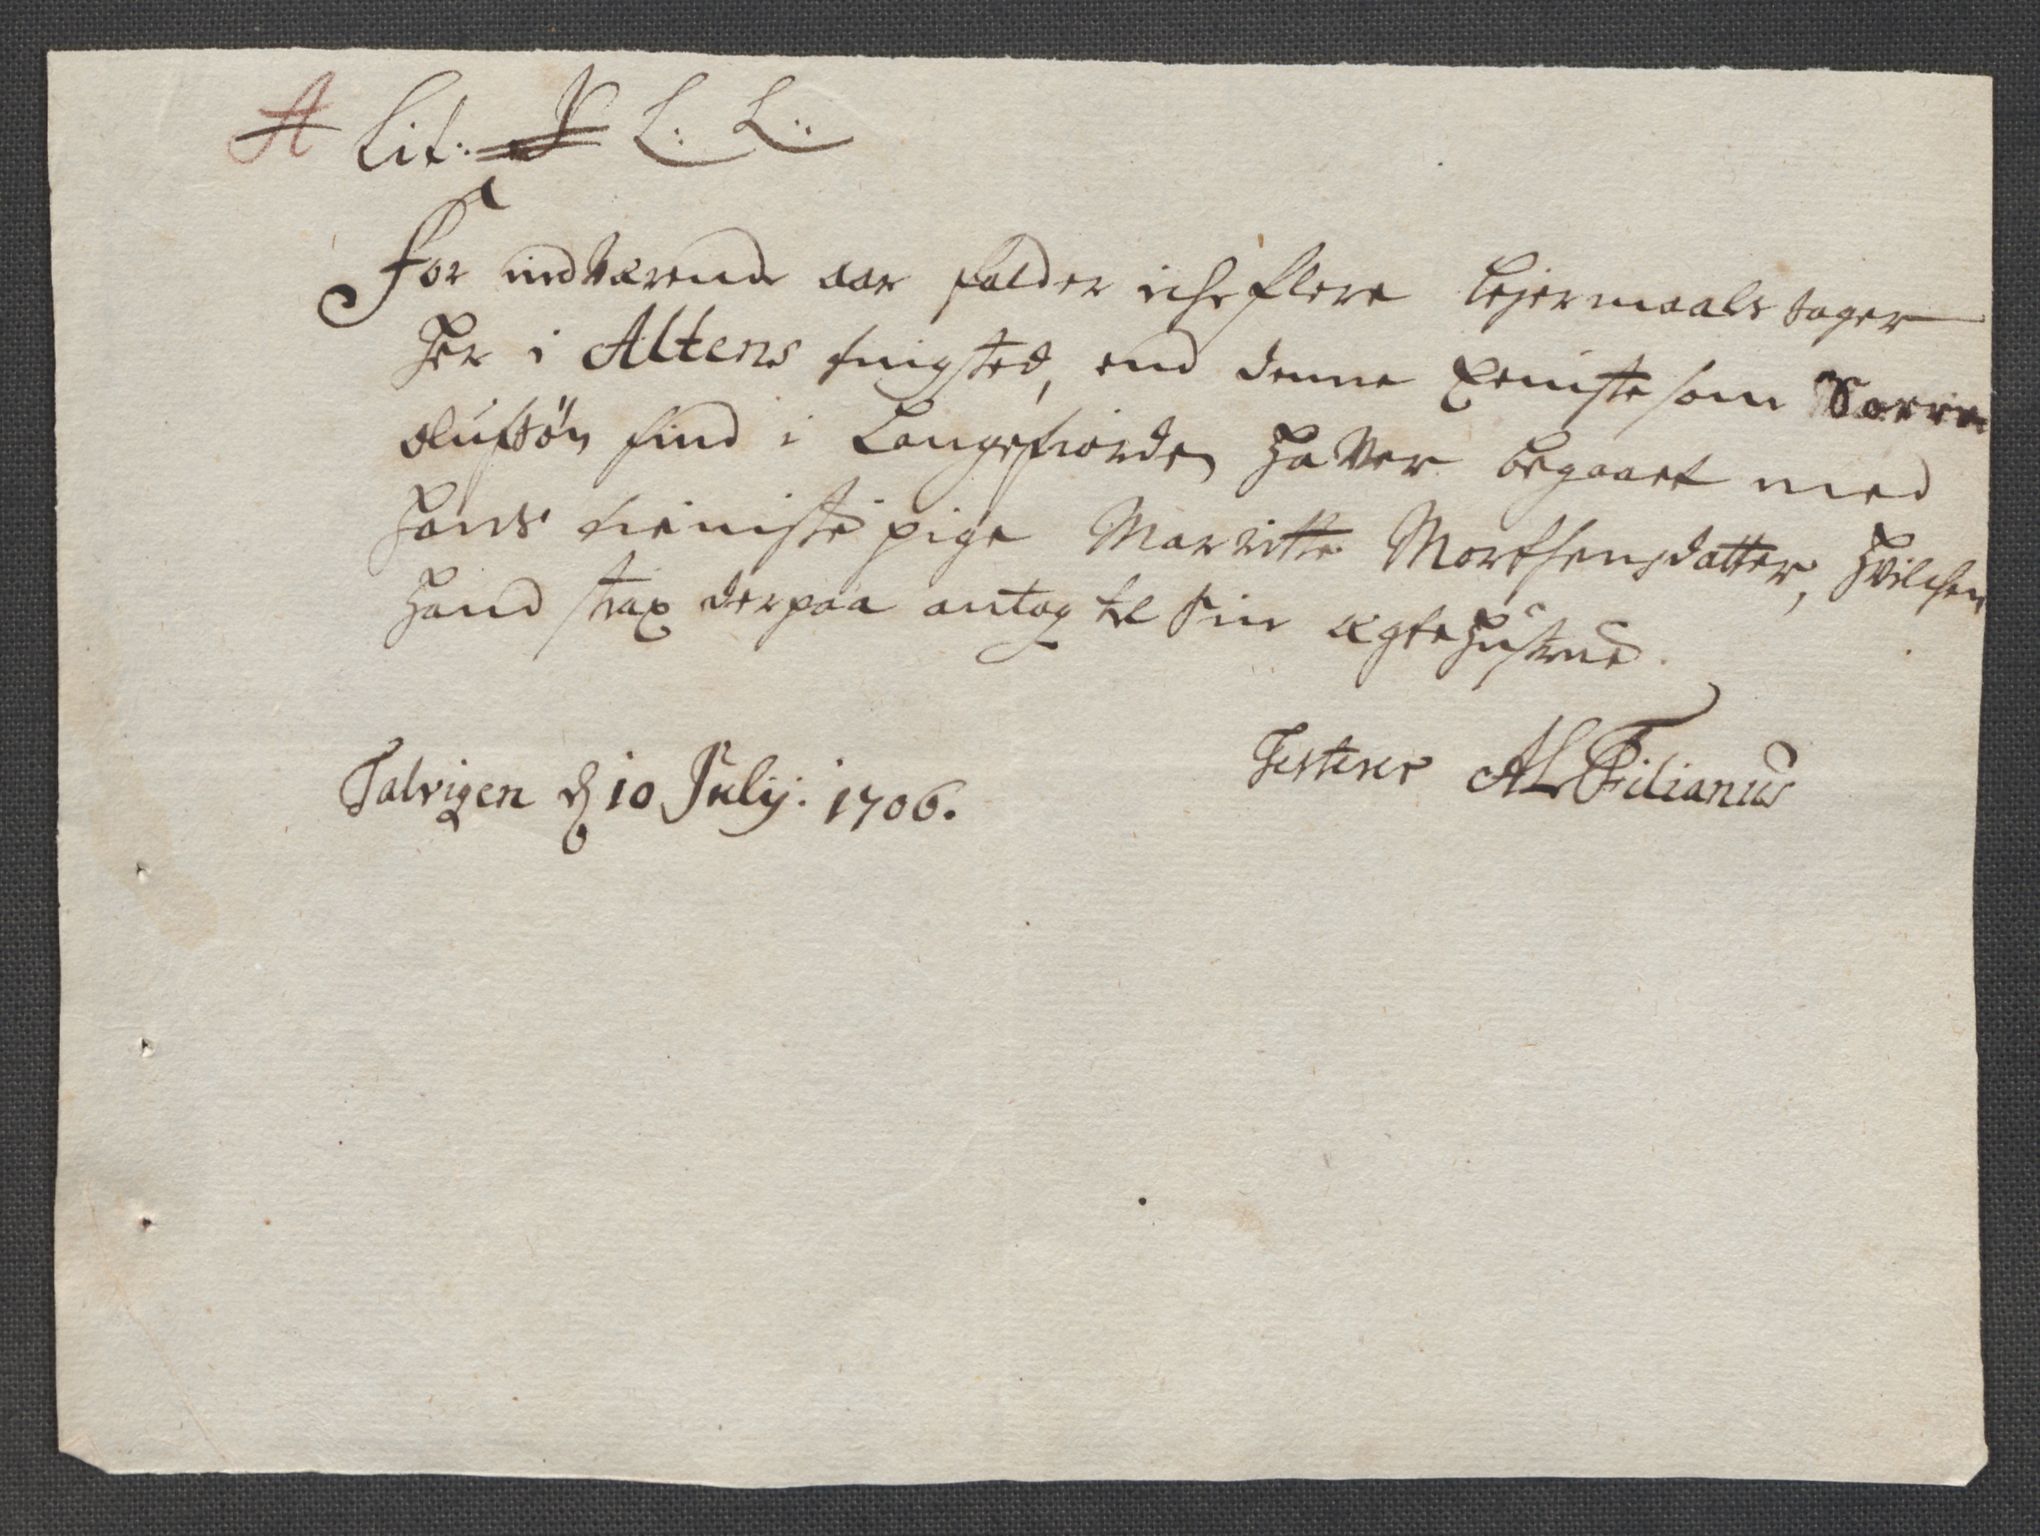 A Lit: L: L:
For indværende aar falder iche flere leyermaals sager
her i Altens tingsted, end denne eeniste som
olufsøn find i Langefiorden haver begaaet med
hans tieniste pige Marritte Morthensdatter, hvilchen
hand strax derpaa antog til sin ægtehustrue.
Talvigen d 10 Julij: 1706.
Testerer AL Filianus